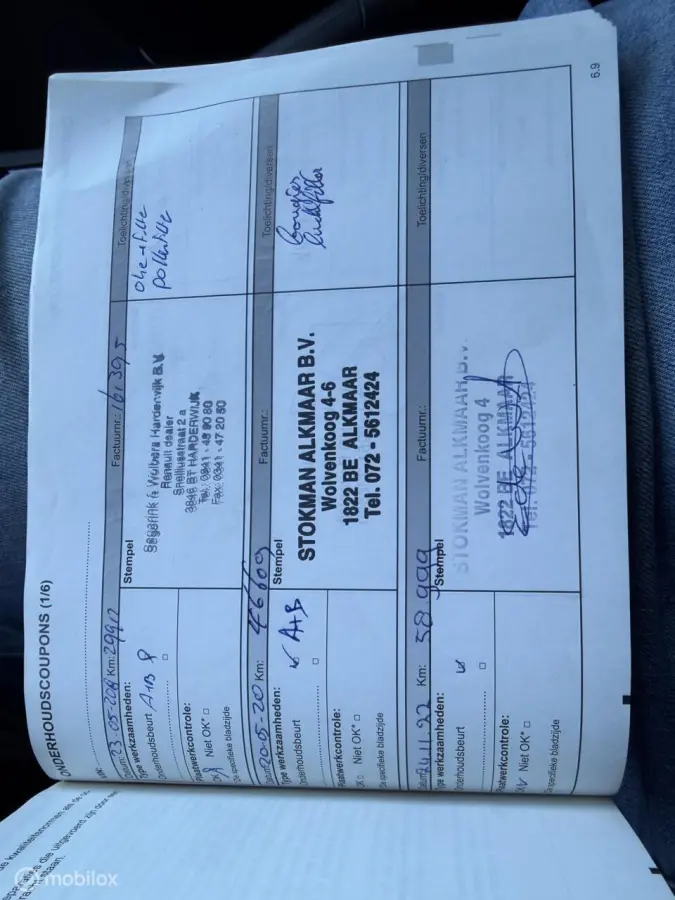 de kwaliteitsnormen als de
die uitgevoerd zijn door
staan.
ONDERHOUDSCOUPONS (1/6)
Datum: 23-05-20 Km: 29912 Factuurnr.: 61395 Toelichting/diversen
Type werkzaamheden:
Onderhoudsbeurt A+B
Stempel
Segerink & Wolbers Harderwijk B.V.
Renault dealer
Snelliusstraat 2 a
3846 BT HARDERWIJK
Tel.: 0341 - 43 90 80
Fax: 0341 - 47 20 50
olie + filter
pollenfilter
Plaatwerkcontrole:
OK Niet OK* □
Zie specifieke bladzijde
Datum: 20-5-20 Km: 46609 Factuurnr.: Toelichting/diversen
Type werkzaamheden:
Onderhoudsbeurt A+B
Stempel
STOKMAN ALKMAAR B.V.
Wolvenkoog 4-6
1822 BE ALKMAAR
Tel. 072 - 5612424
Bougies
Luchtfilter
Plaatwerkcontrole:
OK □ Niet OK* □
Zie specifieke bladzijde
Datum: 24.11.22 Km: 58.999 Factuurnr.: Toelichting/diversen
Type werkzaamheden:
Onderhoudsbeurt
Stempel
STOKMAN ALKMAAR B.V.
Wolvenkoog 4
1822 BE ALKMAAR
Tel. 072 - 5612424
Plaatwerkcontrole:
OK Niet OK* □
Zie specifieke bladzijde
6.9
mobilox